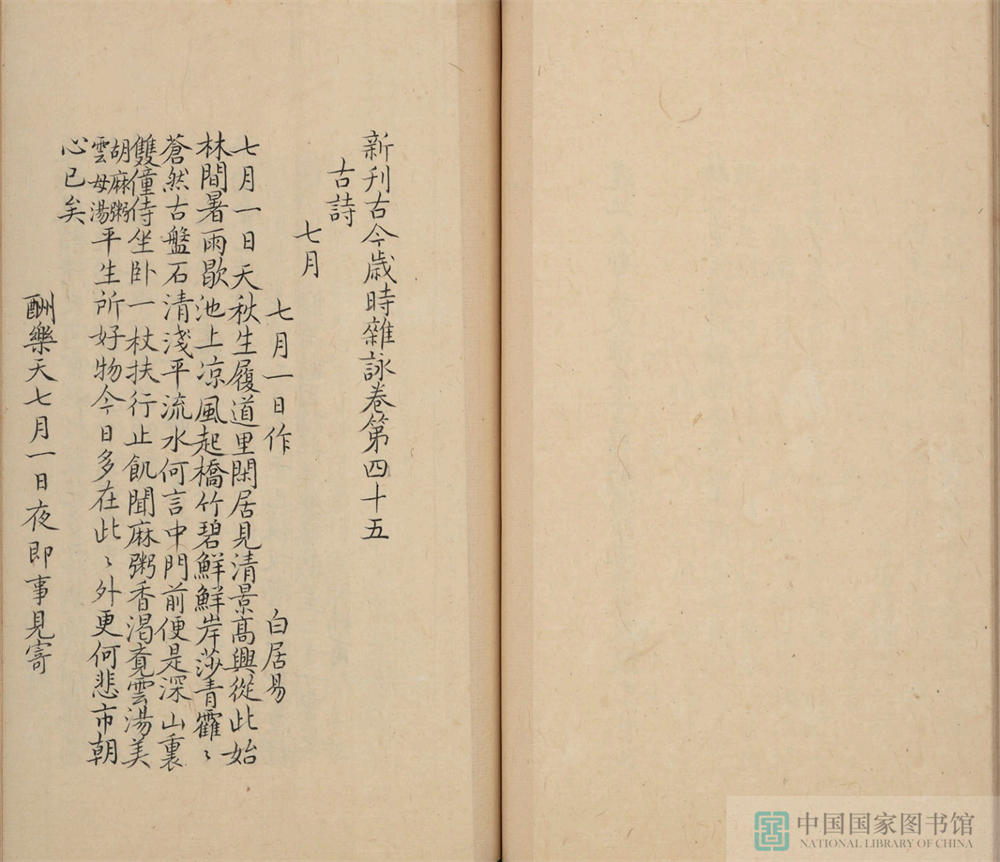 新刊古今歲時雜詠卷第四十五
古詩
七月
七月一日作 白居易
七月一日天秋生履道里閑居見清景高興從此始
林間暑雨歇池上凉風起橋竹碧鮮鮮岸莎青靃〻
蒼然古盤石清淺平流水何言中門前便是深山裏
雙僮侍坐卧一杖扶行止飢聞麻粥香渴覔雲湯美
胡麻粥
雲母湯
平生所好物今日多在此〻外更何悲市朝
心已矣
酬樂天七月一日夜即事見寄
中国国家图书馆
NATIONAL LIBRARY OF CHINA